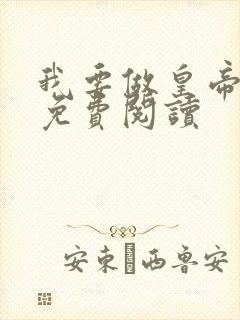 我要做皇帝
免費閱讀
安東·西魯安